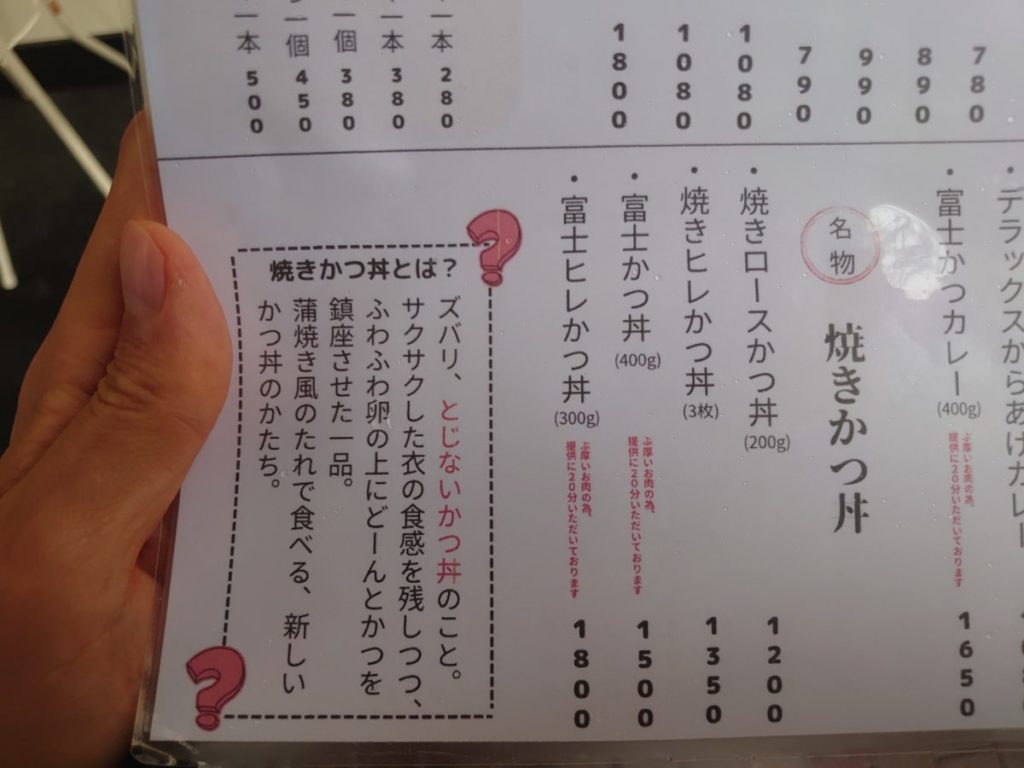 780
890
990
790
1080
1080
1800
一本 280
一本 380
一個 380
一個 450
一本 500
・デラックスからあげカレー
・富士かつカレー(400g)
ぶ厚いお肉の為、
提供に20分いただいております
1650
名物
焼きかつ丼
・焼きロースかつ丼(200g) 1200
・焼きヒレかつ丼(3枚) 1350
・富士かつ丼(400g)
ぶ厚いお肉の為、
提供に20分いただいております
1500
・富士ヒレかつ丼(300g)
ぶ厚いお肉の為、
提供に20分いただいております
1800
焼きかつ丼とは？
ズバリ、とじないかつ丼のこと。
サクサクした衣の食感を残しつつ、
ふわふわ卵の上にどーんとかつを
鎮座させた一品。
蒲焼き風のたれで食べる、新しい
かつ丼のかたち。